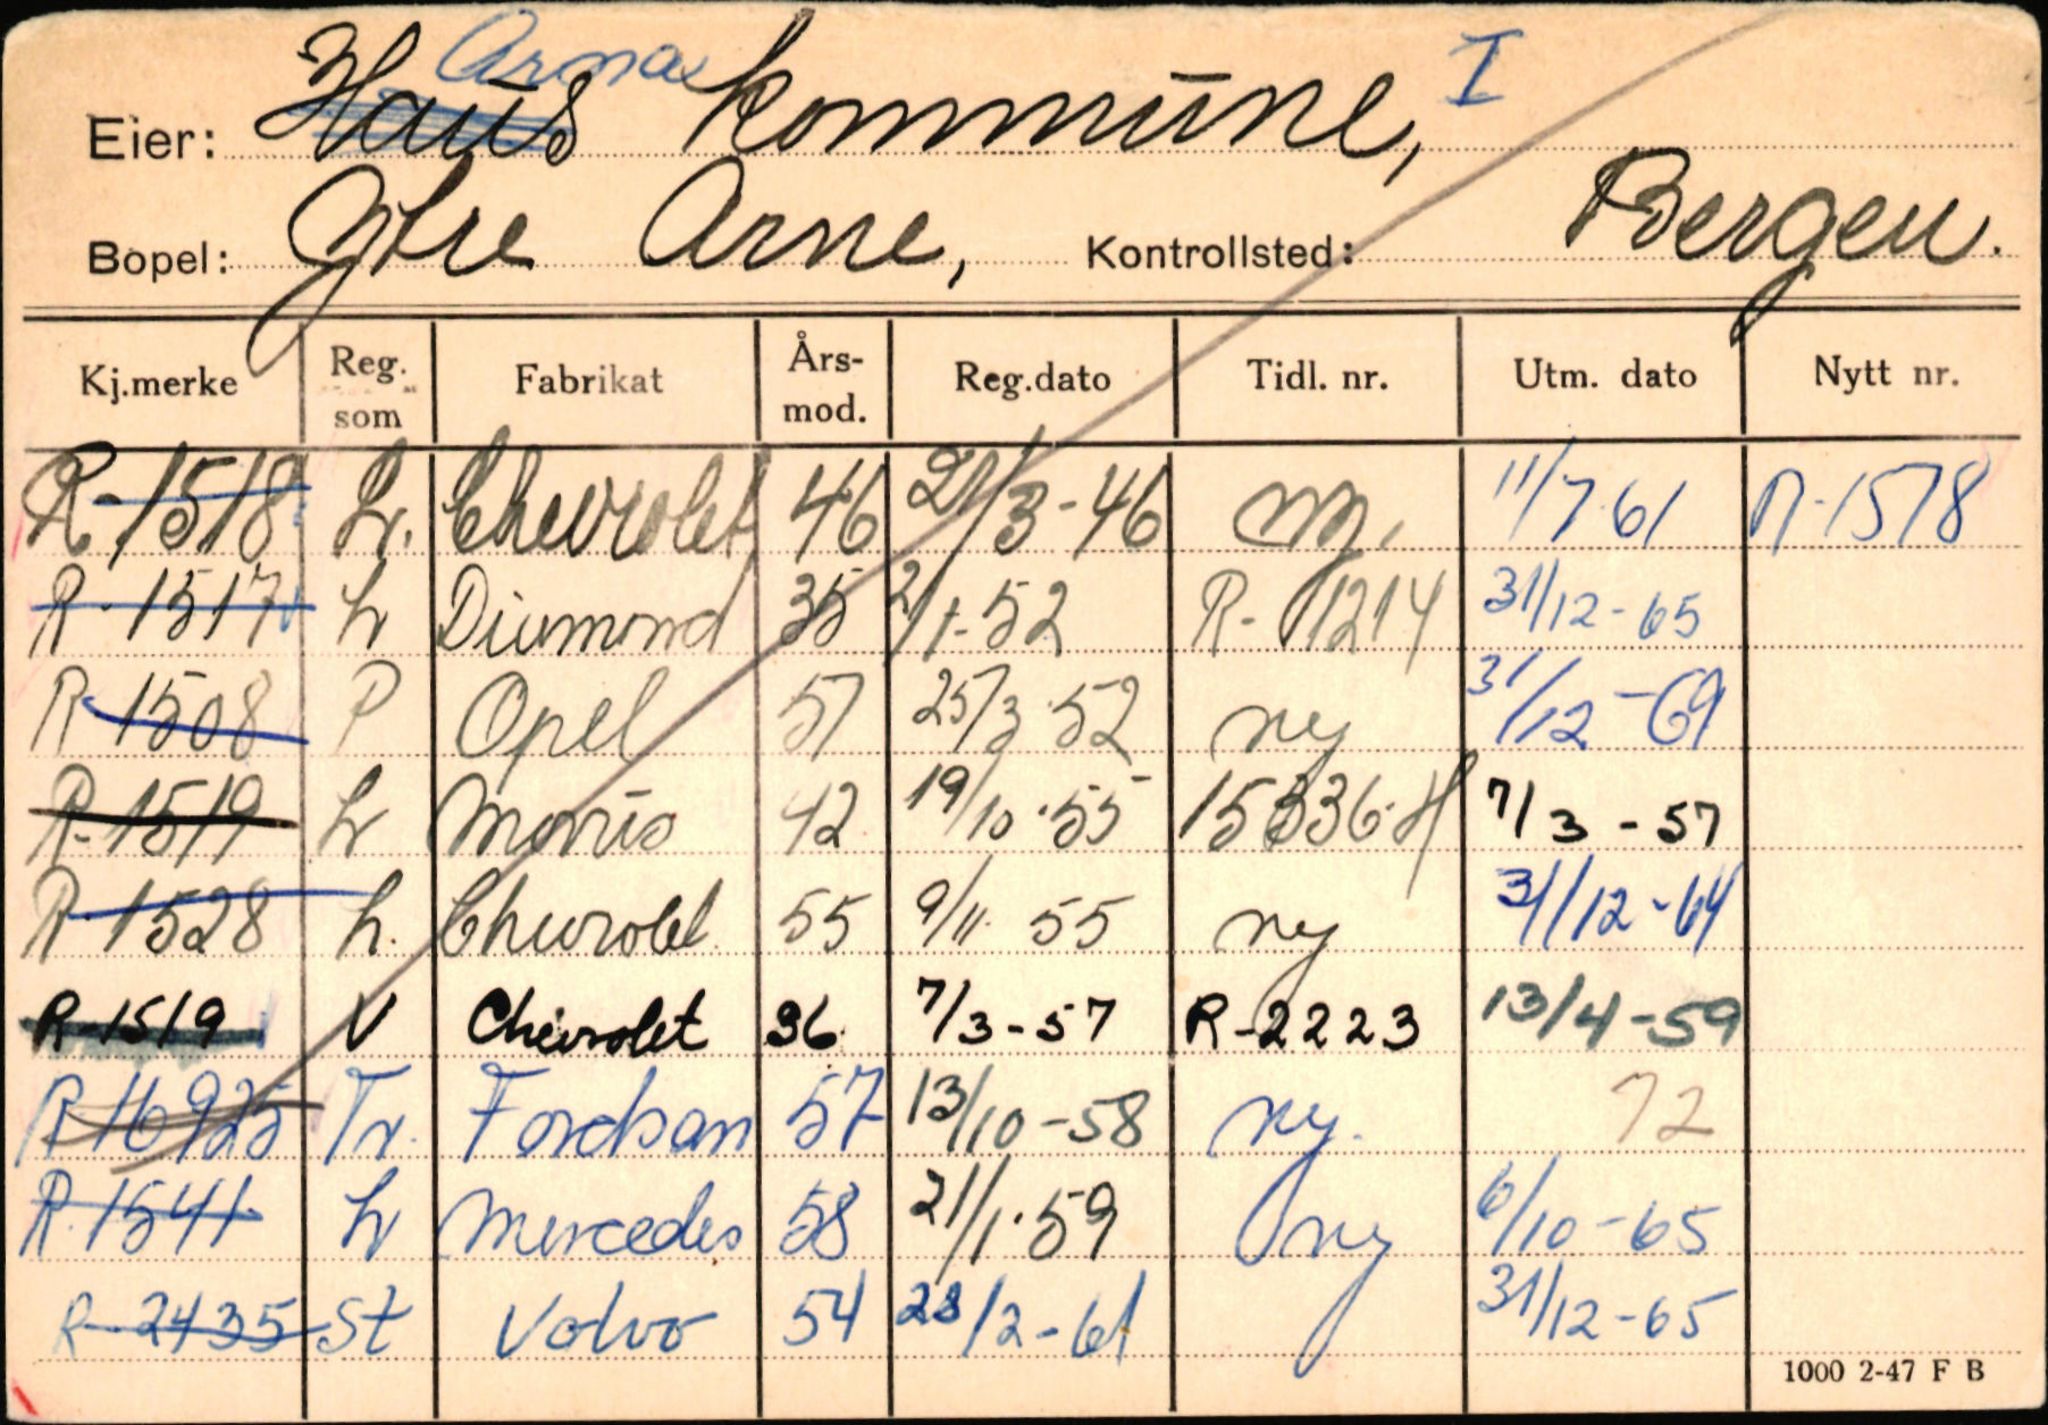 Arna I
Eier: Haus Kommune,
Bopel: Ytre Arne, Kontrollsted: Bergen.
Kj.merke Reg. som Fabrikat Års-mod. Reg.dato Tidl. nr. Utm. dato Nytt nr.
R-1518 L. Chevrolet 46 21/3-46 ny. 11/7-61 R-1518
R-1517 L Diamond 35 2/1-52 R-11214 31/12-65
R-1508 P Opel 51 25/3-52 ny 31/12-69
R-1519 L Morris 42 19/10-55 15336-H 7/3-57
R-1528 L. Chevrolet 55 9/11-55 ny 31/12-64
R-1519 V Chevrolet 36 7/3-57 R-2223 13/4-59
R-16925 Tr. Fordson 57 13/10-58 ny. 72
R-1541 L Mercedes 58 21/1-59 ny 6/10-65
R-2435 St Volvo 54 28/2-61 31/12-65
1000 2-47 F B